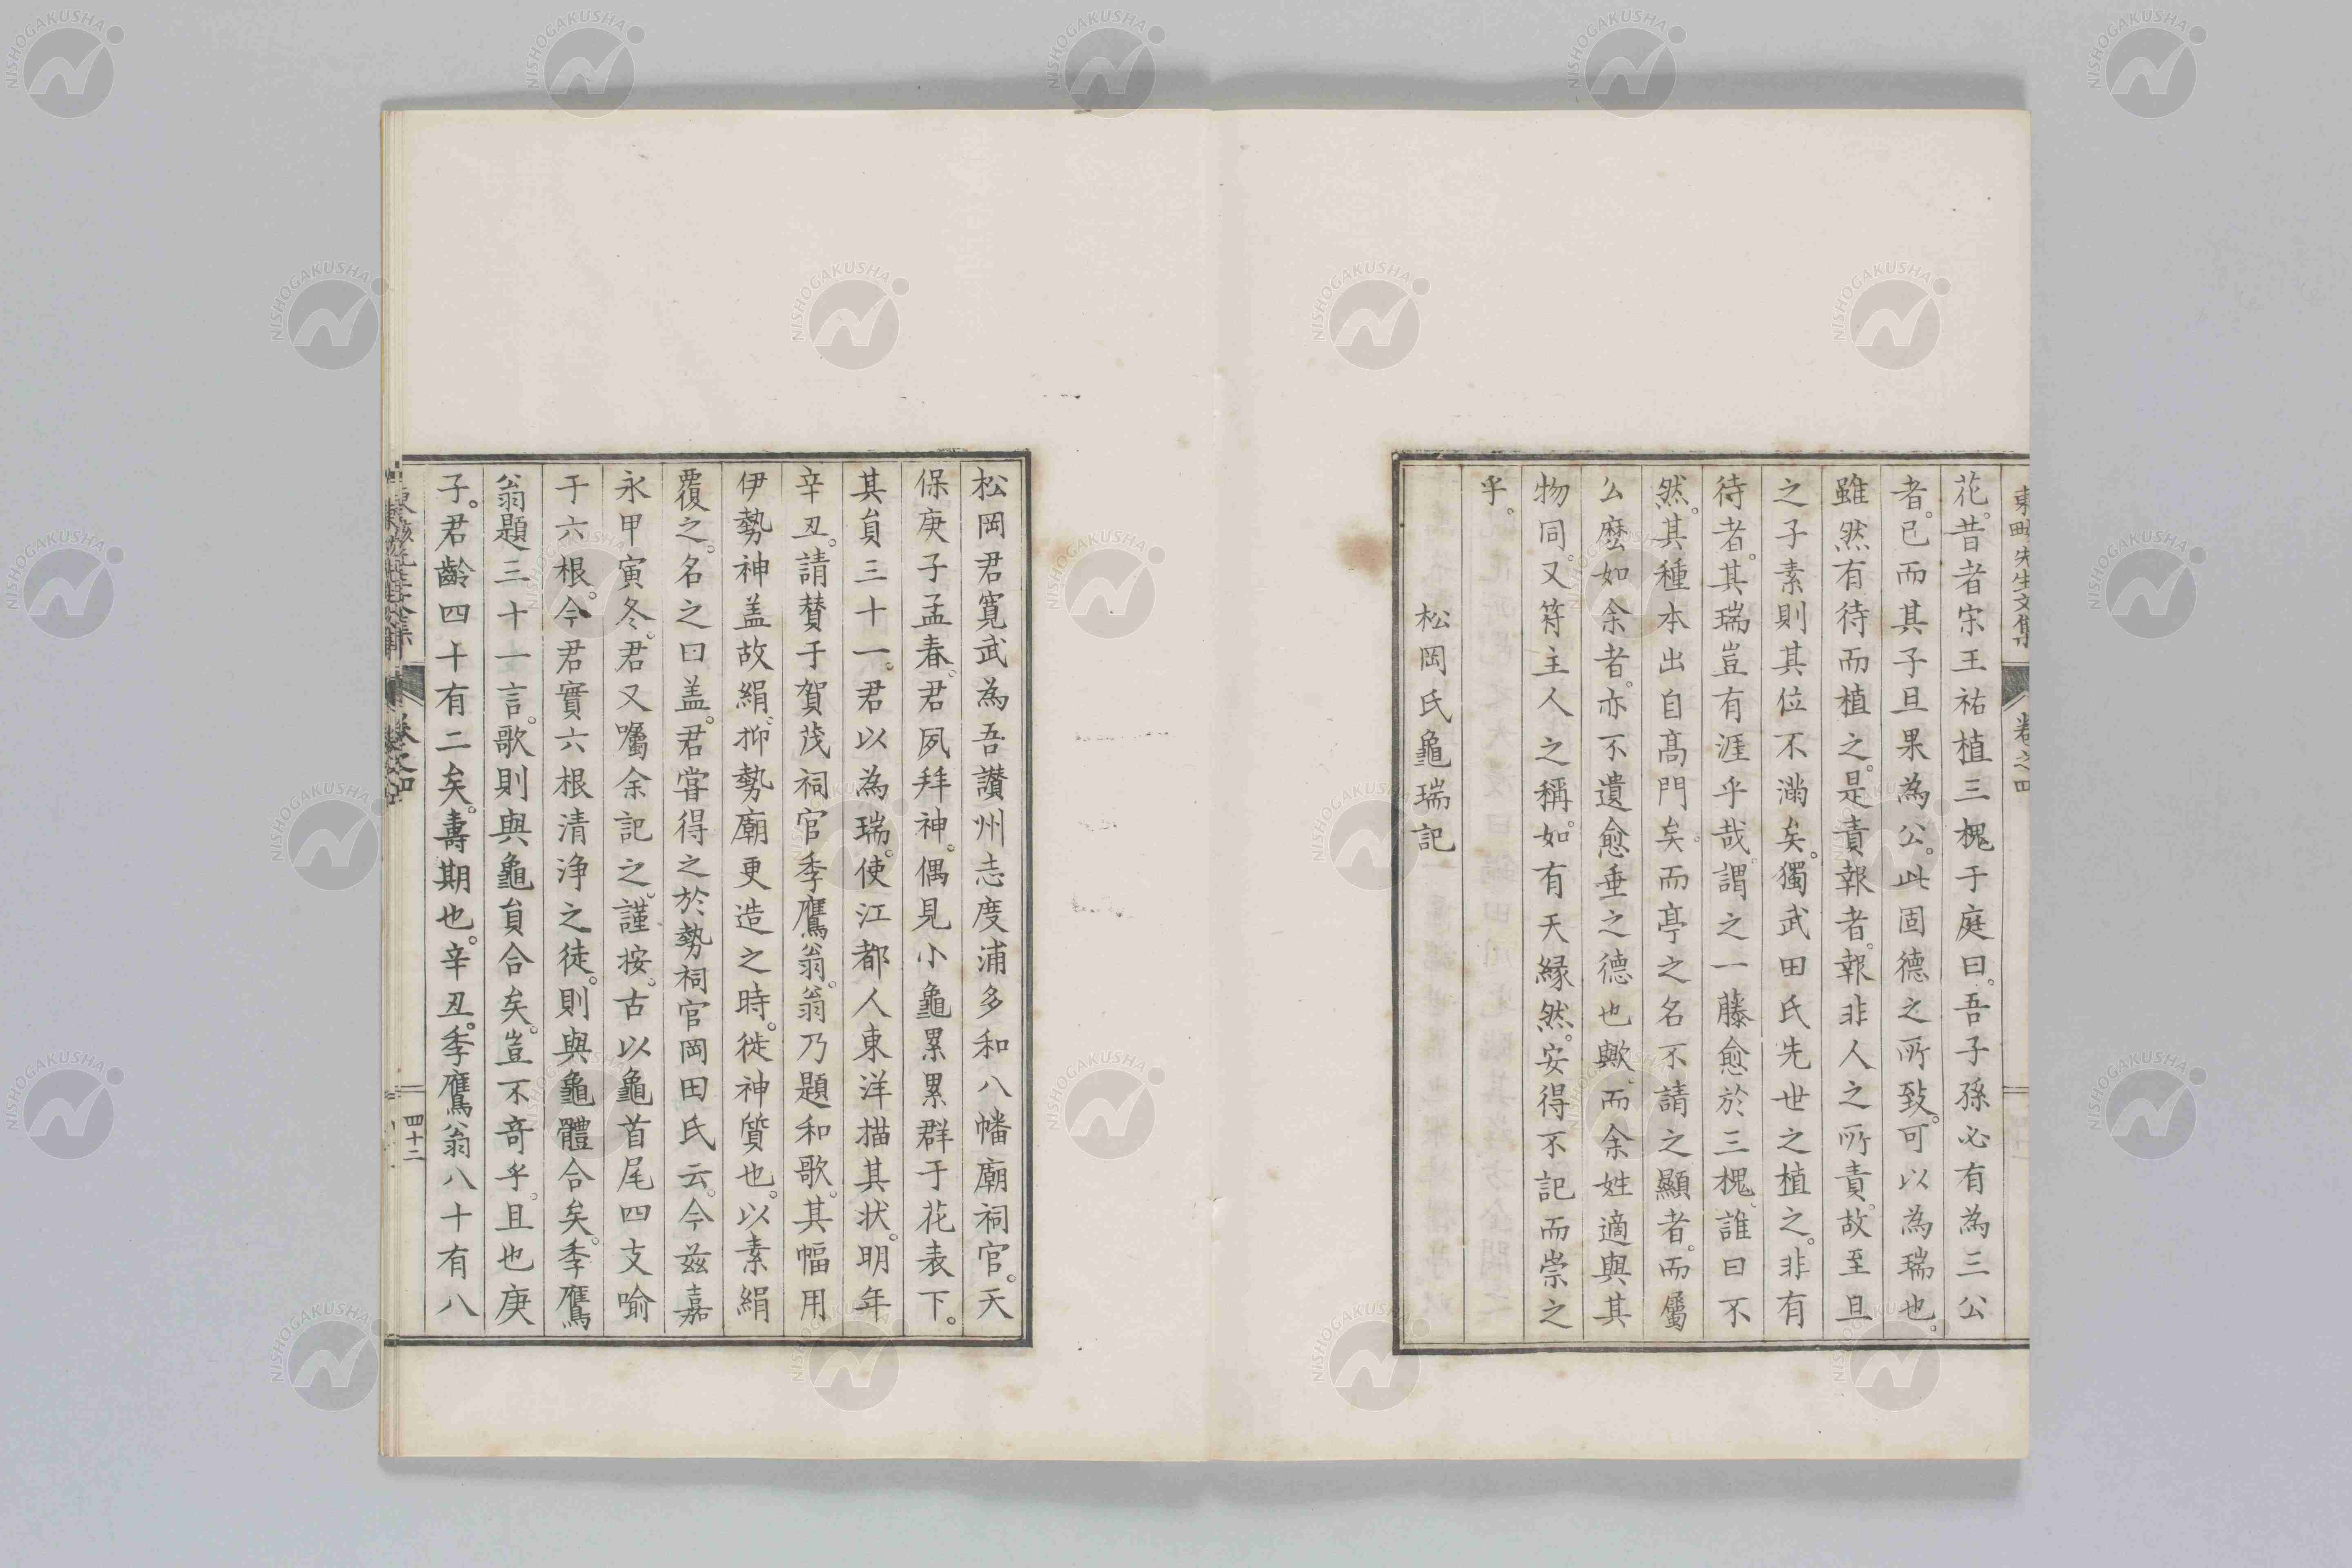 花。昔者宋王祐植三槐于庭曰。吾子孫必有為三公
者。已而其子旦果為公。此固德之所致。可以為瑞也。
雖然有待而植之。是責報者。報非人之所責。故至旦
之子素則其位不滿矣。獨武田氏先世之植之。非有
待者。其瑞豈有涯乎哉。謂之一藤愈於三槐。誰曰不
然。其種本出自髙門矣。而亭之名不請之顯者。而屬
么麽如余者。亦不遺愈垂之德也歟。而余姓適與其
物同。又符主人之稱。如有天縁然。安得不記而崇之
乎。
松岡氏龜瑞記
松岡君寛武為吾讃州志度浦多和八幡廟祠官。天
保庚子孟春。君夙拜神。偶見小龜累累群于花表下。
其貟三十一。君以為瑞。使江都人東洋描其状。明年
辛丑。請賛于賀茂祠官季鷹翁。翁乃題和歌。其幅用
伊勢神盖故絹。抑勢廟更造之時。徙神質也。以素絹
覆之。名之曰盖。君嘗得之於勢祠官岡田氏云。今茲嘉
永甲寅冬。君又囑余記之。謹按。古以龜首尾四支喻
于六根。今君實六根清浄之徒。則與龜體合矣。季鷹
翁題三十一言。歌則與龜貟合矣。豈不竒乎。且也庚
子。君齡四十有二矣。壽期也。辛丑。季鷹翁八十有八
四十二
東畡先生文集
卷之四
NISHOGAKUSHA